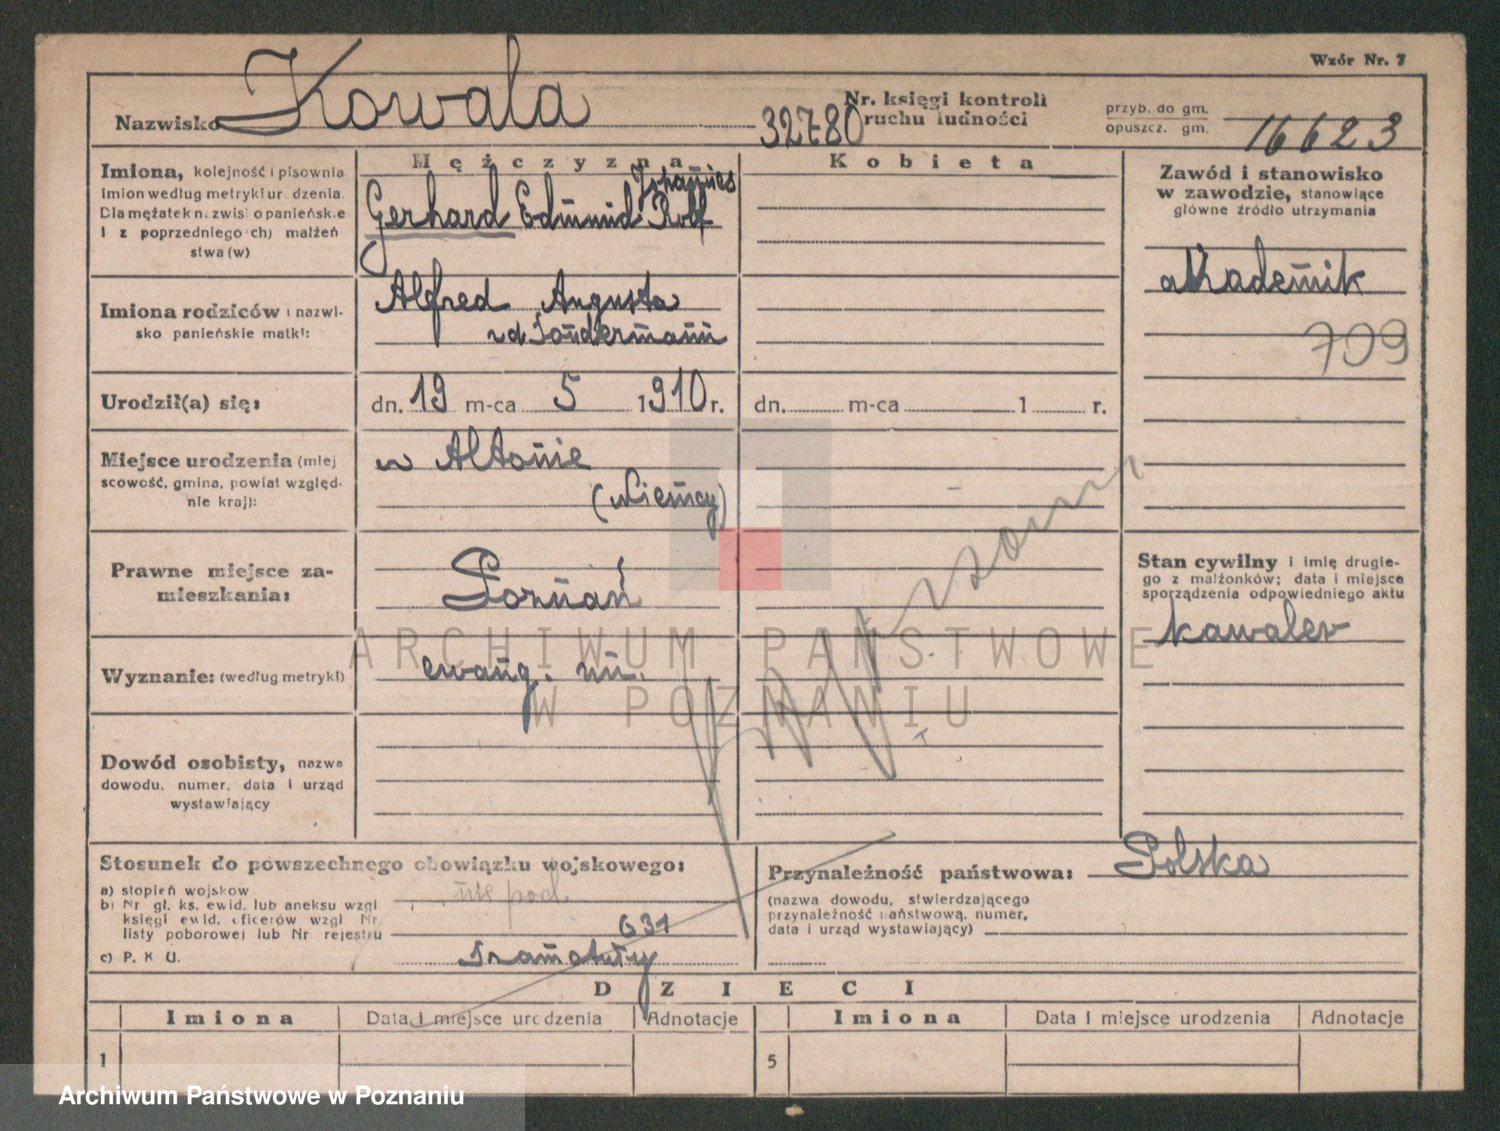 Wzór Nr. 7
Nazwisko Kowala
32780
Nr. księgi kontroli
ruchu ludności
przyb. do gm.
opuszcz. gm.
16623
Mężczyzna
Kobieta
Imiona, kolejność i pisownia
Imion według metryki ur dzenia.
Dla mężatek nazwisko panieńskie
i z poprzedniego (ch) małżeń
stwa (w)
Johannes
Gerhard Edmund Rolf
Zawód i stanowisko
w zawodzie, stanowiące
główne źródło utrzymania
akademik
709
Imiona rodziców i nazwi-
sko panieńskie matki:
Alfred Augusta
vd Sondermann
Urodził(a) się:
dn. 19 m-ca 5 1910 r.
dn. m-ca 1 r.
Miejsce urodzenia (miej
scowość, gmina, powiat względ-
nie kraj):
w Altonie
(Niemcy)
Prawne miejsce za-
mieszkania:
Poznań
Stan cywilny i imię drugie-
go z małżonków; data i miejsce
sporządzenia odpowiedniego aktu
kawaler
Wyznanie: (według metryki)
ewang.
ARCHIWUM PAŃSTWOWE
W POZNANIU
Dowód osobisty, nazwa
dowodu, numer, data i urząd
wystawiający
Stosunek do powszechnego obowiązku wojskowego:
a) stopień wojskow
nie pod
b) Nr gł. ks. ewid. lub aneksu wzgl.
księgi ewid. oficerów wzgl. Nr.
listy poborowej lub Nr rejestru
631
c) P. K. U.
Szamotuły
Przynależność państwowa: Polska
(nazwa dowodu, stwierdzającego
przynależność państwową, numer,
data i urząd wystawiający)
DZIECI
Imiona
Data i miejsce urodzenia
Adnotacje
Imiona
Data i miejsce urodzenia
Adnotacje
1
5
Archiwum Państwowe w Poznaniu